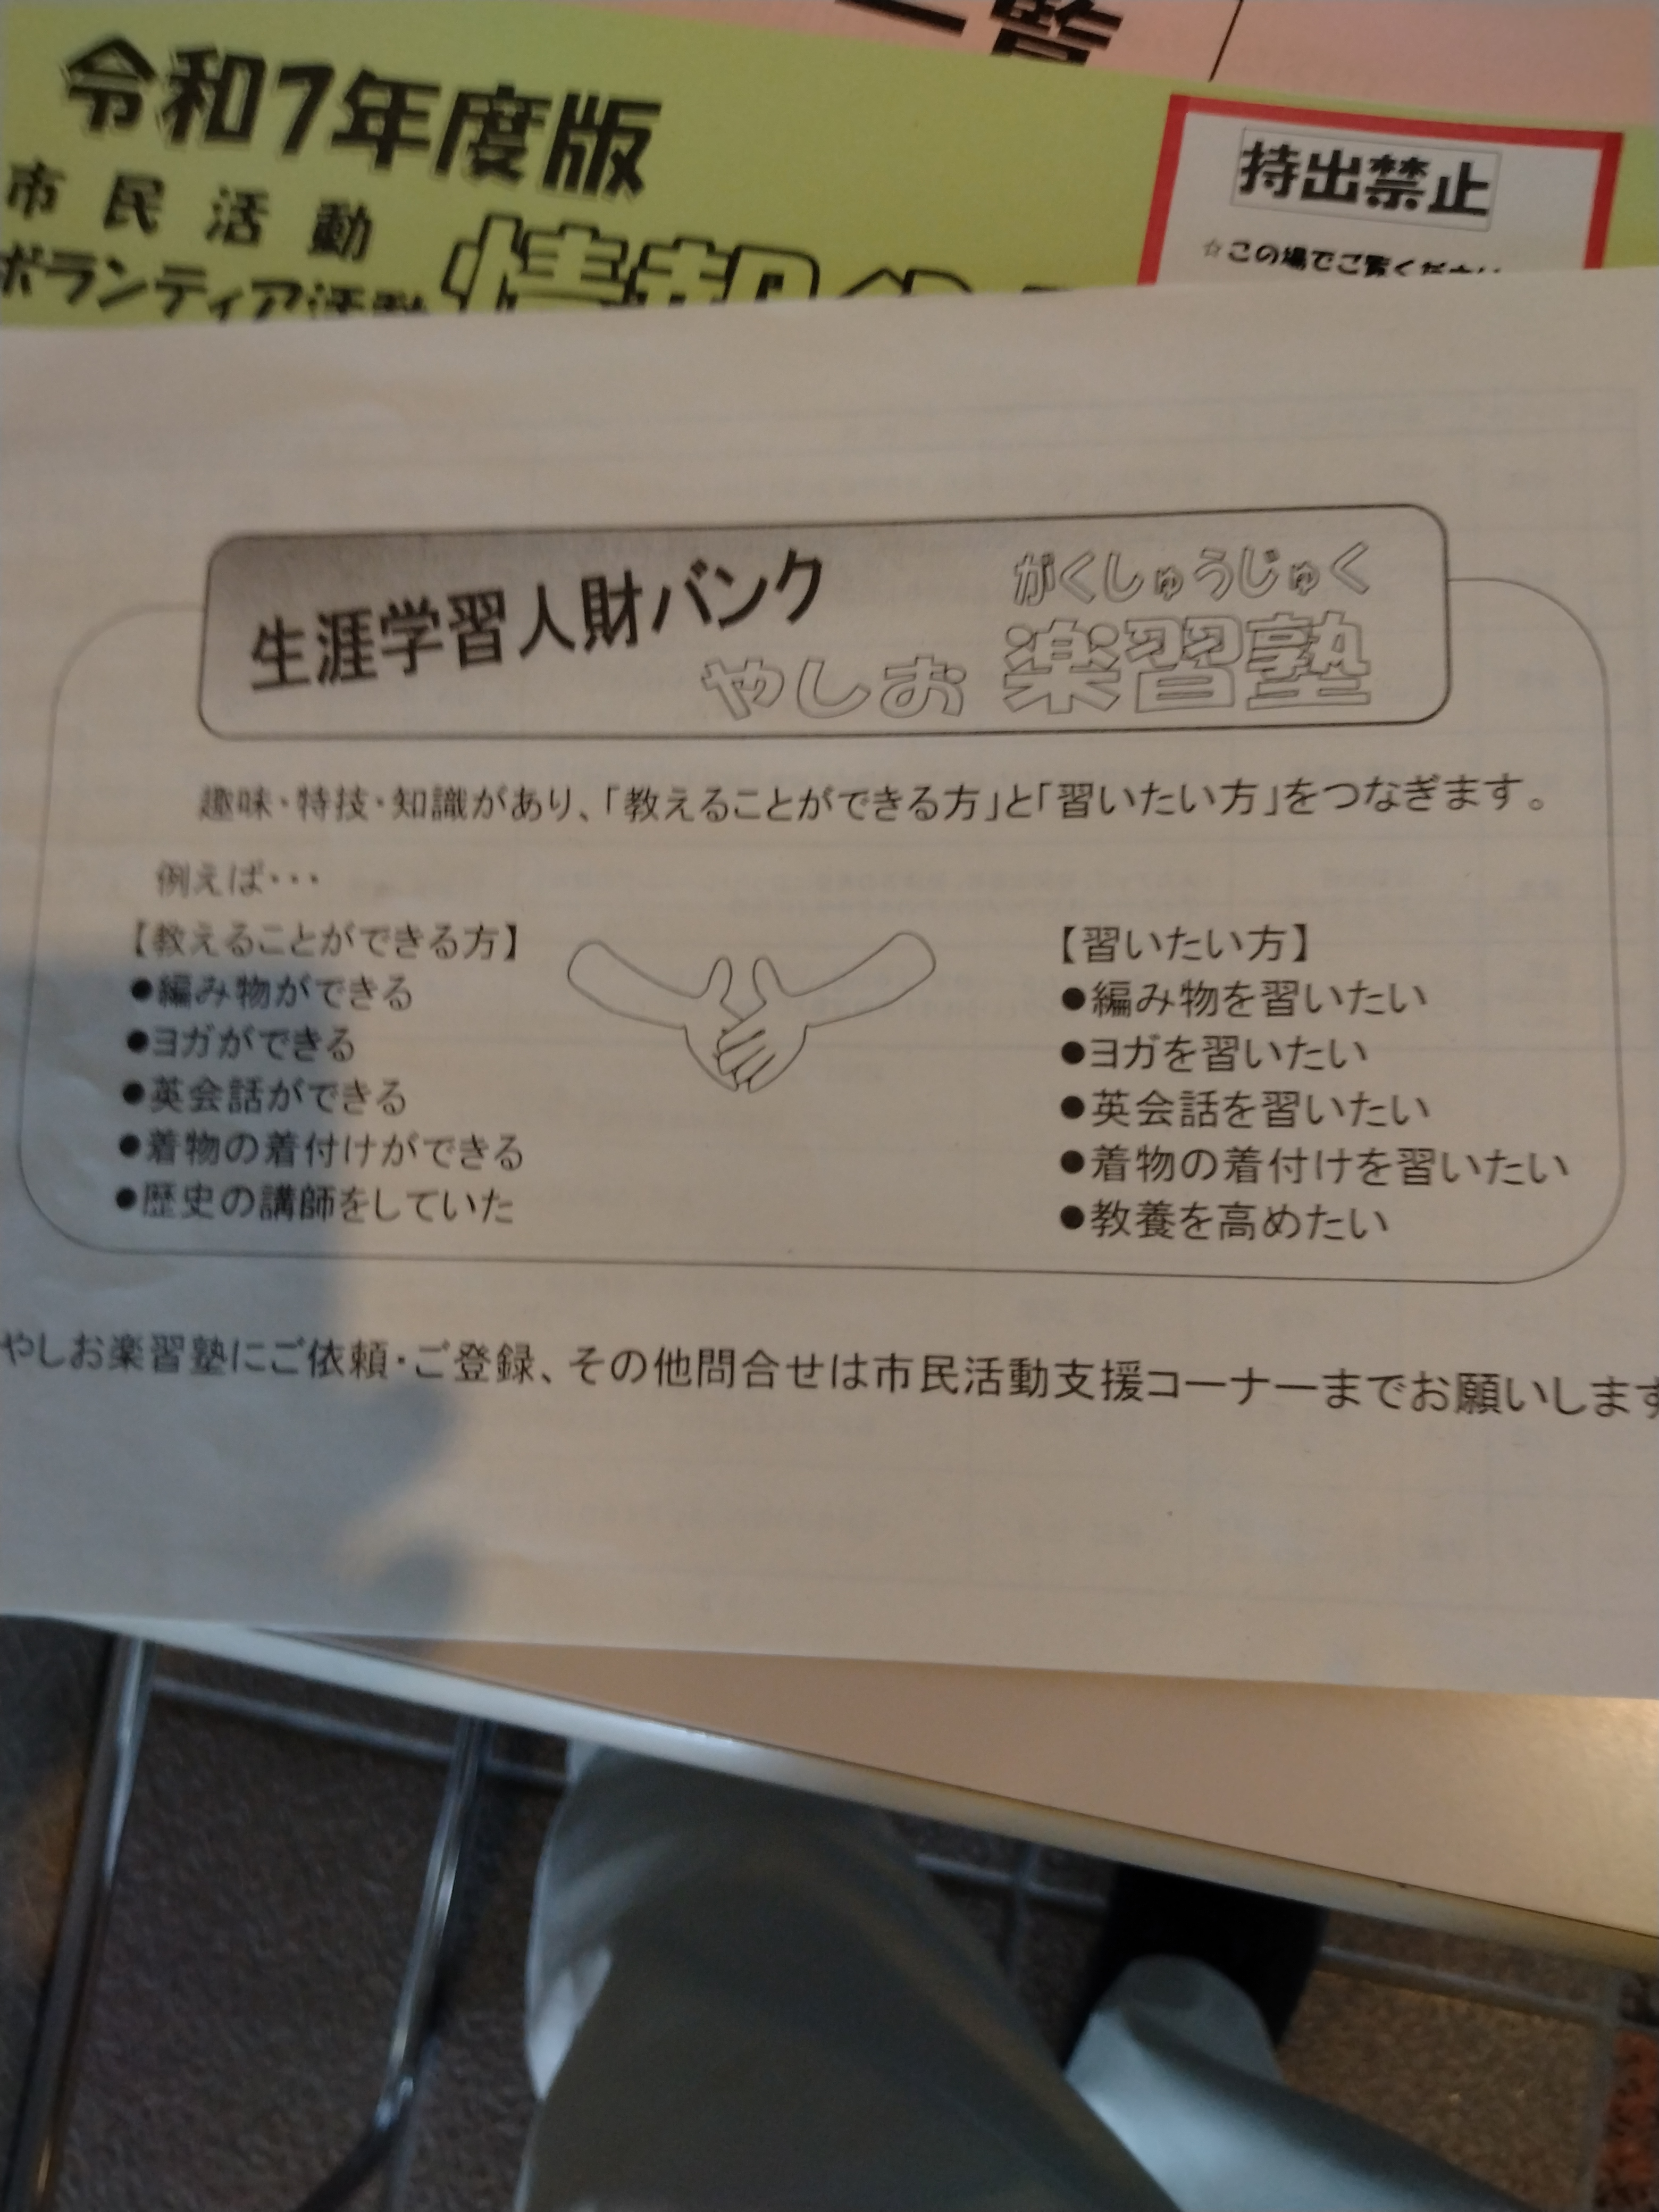 一覧
令和7年度版
市民活動
ボランティア活動
情報
持出禁止
☆この場でご覧ください
生涯学習人財バンク
がくしゅうじゅく
やしお 楽習塾
趣味・特技・知識があり、「教えることができる方」と「習いたい方」をつなぎます。
例えば・・・
【教えることができる方】
●編み物ができる
●ヨガができる
●英会話ができる
●着物の着付けができる
●歴史の講師をしていた
【習いたい方】
●編み物を習いたい
●ヨガを習いたい
●英会話を習いたい
●着物の着付けを習いたい
●教養を高めたい
やしお楽習塾にご依頼・ご登録、その他問合せは市民活動支援コーナーまでお願いします